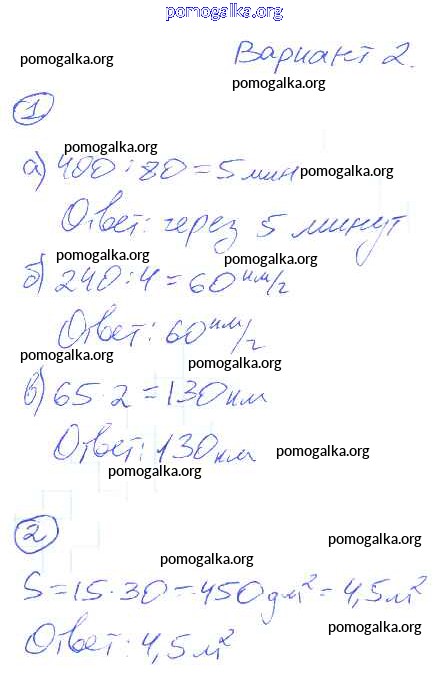 pomogalka.org
Вариант 2.
pomogalka.org
pomogalka.org
1
pomogalka.org
а) 400 : 80 = 5 мин
pomogalka.org
Ответ: через 5 минут
pomogalka.org
pomogalka.org
б) 240 : 4 = 60 км/г
Ответ: 60 км/г
pomogalka.org
pomogalka.org
в) 65 · 2 = 130 км
Ответ: 130 км
pomogalka.org
pomogalka.org
2
pomogalka.org
pomogalka.org
S = 15 · 30 = 450 дм² = 4,5 м²
pomogalka.org
Ответ: 4,5 м²
pomogalka.org